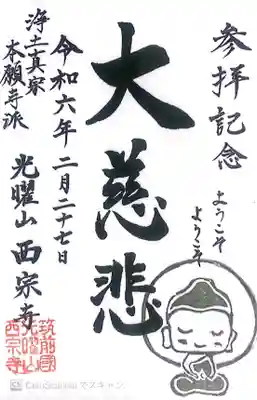 参拝記念
ようこそ
ようこそ
大慈悲
令和六年 二月二十七日
浄土真宗
本願寺派
光曜山 西宗寺
筑前國
光曜山
西宗寺
CamScanner でスキャン